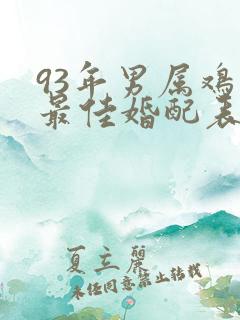 93年男属鸡
最佳婚配表
夏立丽
未经同意禁止转载